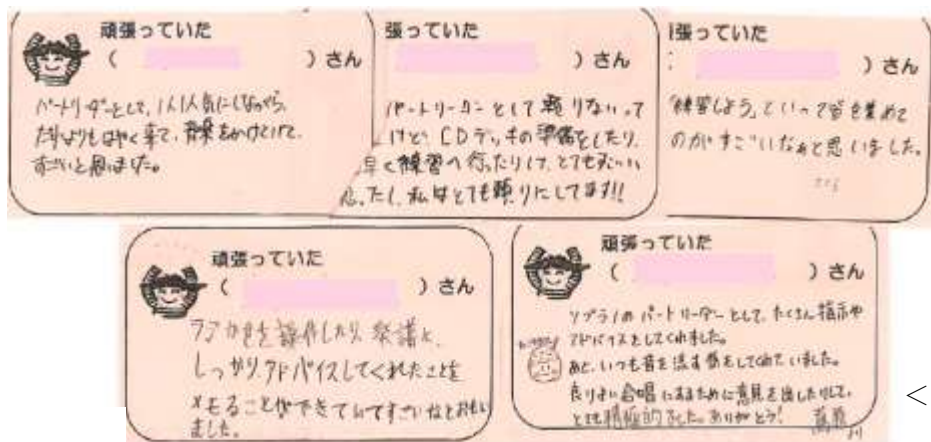 頑張っていた
( ) さん
パートリーダーとして、1人1人気にしながら、
だれよりもはやく来て、音楽をかけていて、
すごいと思いました。
張っていた
) さん
パートリーダーとして頼りないって
けど、CDデッキの準備をしたり、
早く練習へ行ったりして、とても
たし、私はとても頼りにしてます!!
張っていた
) さん
「練習しよう」といって皆を集めて
のがすごいなぁと思いました。
頑張っていた
( ) さん
ラジカセを操作したり、楽譜に、
しっかりアドバイスしてくれたことを
メモることができていてすごいなとおもい
ました。
頑張っていた
( ) さん
ソプラノのパートリーダーとして、たくさん指示や
アドバイスをしてくれました。
あと、いつも音を流す係をしてくれていました。
良りよい合唱にするために意見を出したりして、
とても積極的でした。ありがとう!
<